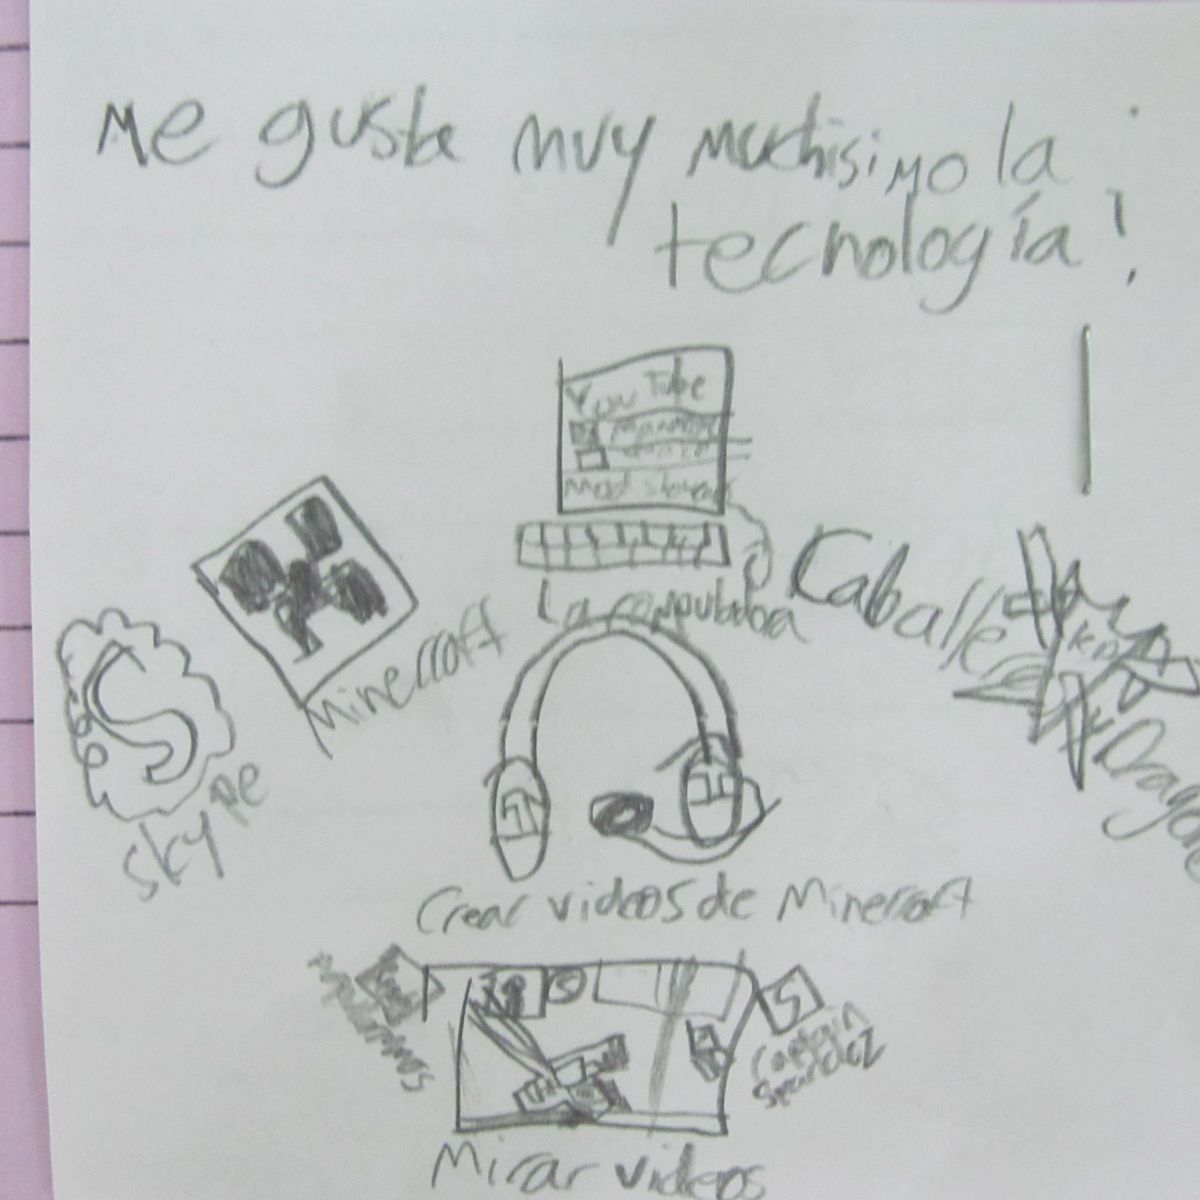 Me gusta muy muchisimo la
tecnología!
YouTube
La computadora
Minecraft
S
Skype
Caballe
Dragone
Crear videos de Minecraft
S
Captain
Sparklez
Mirar videos